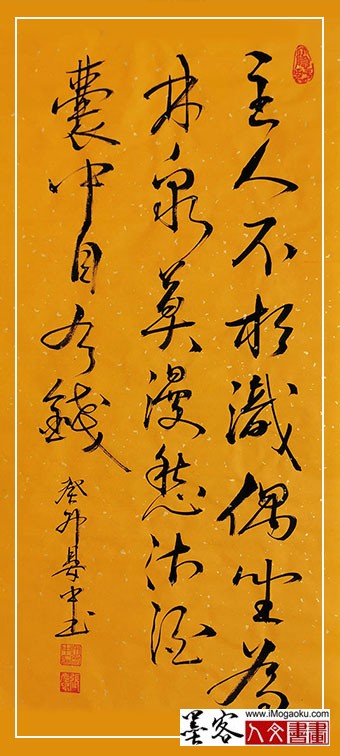 主人不相識偶坐為
林泉莫漫愁沽酒
囊中自有錢
癸卯 中书
墨客
www.iMogaoku.com
人文書畫